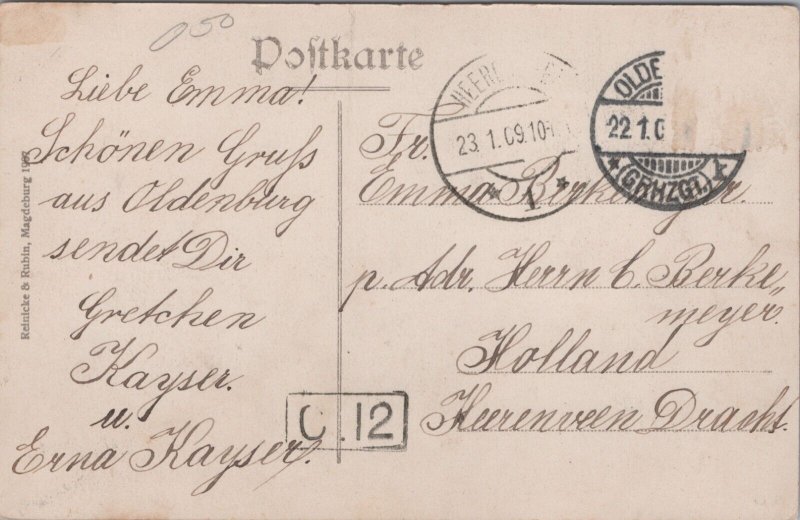 0 50
Postkarte
Liebe Emma!
Schönen Gruß
aus Oldenburg
sendet Dir
Gretchen
Kayser.
u.
Erna Kayser.
Reinicke & Rubin, Magdeburg 1907
HEERE
23.1.09.10-
1
OLDE
22.1.0
(GRHZGT.) 1
Fr.
Emma Berkemeyer.
p. Adr. Herrn C. Berke„
meyer.
Holland
Heerenveen Dracht.
C.12